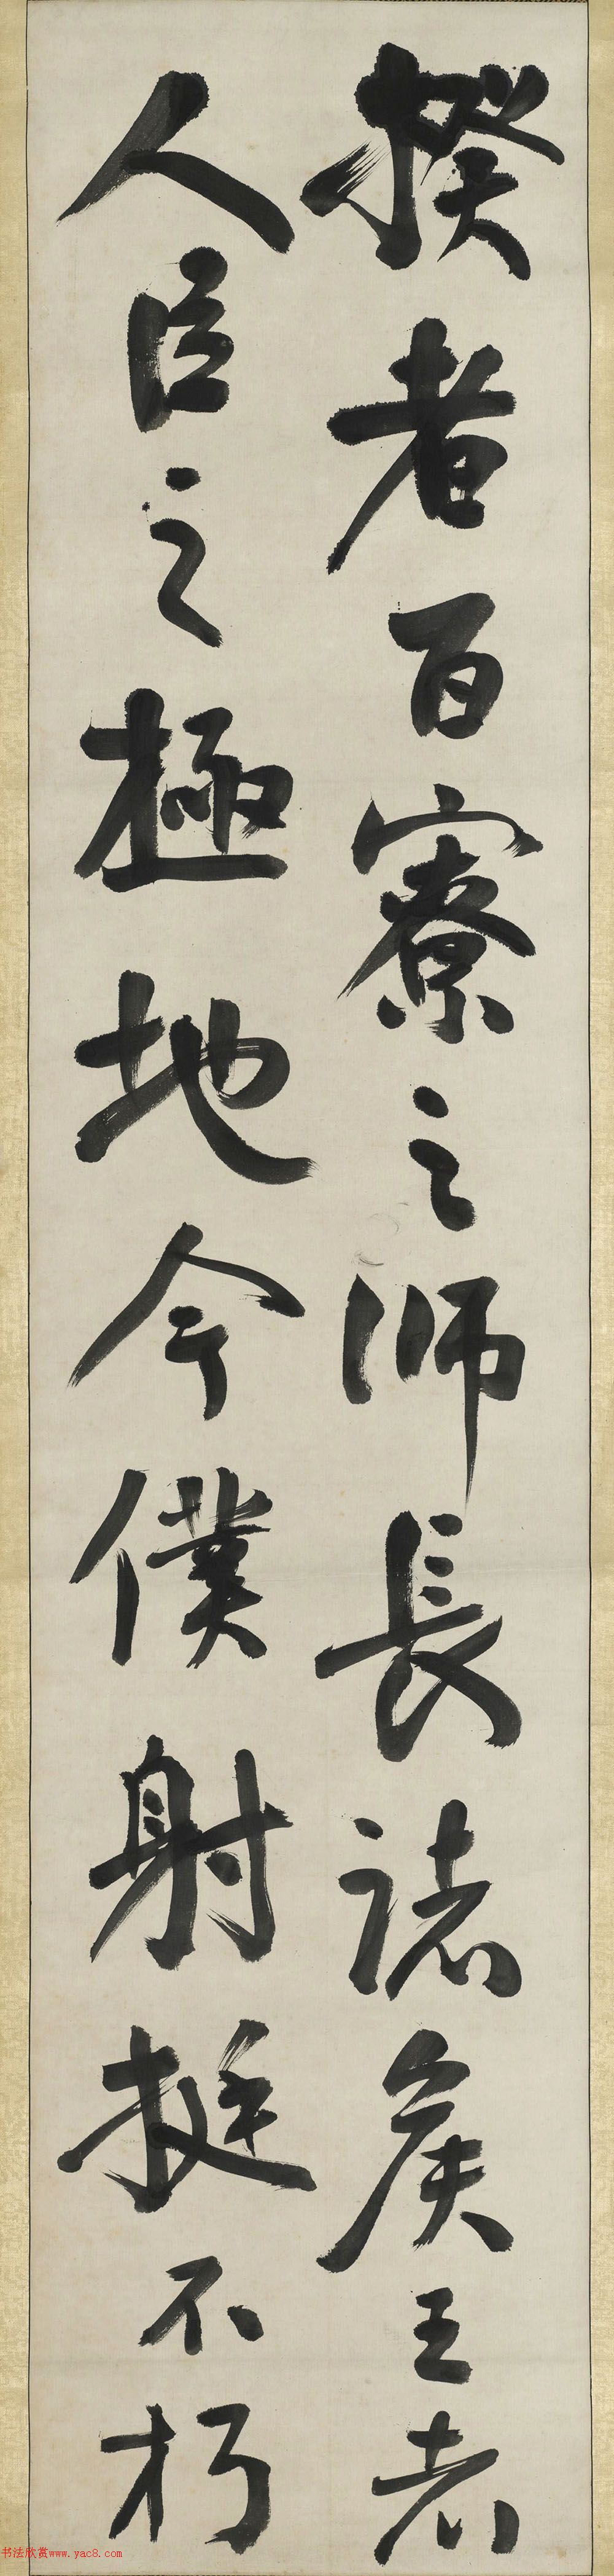 揆者百寮之師長諸侯王者
人臣之極地今僕射挺不朽
书法欣赏www.yac8.com